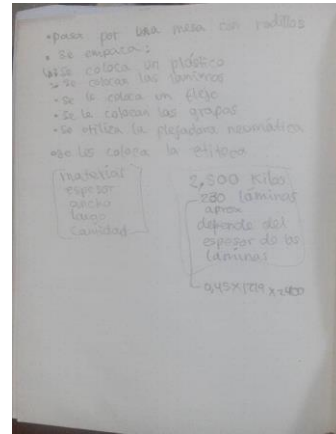 • pasa por una mesa con rodillos
• se empaca:
se coloca un plástico
se colocan las láminas
• se le coloca un fleje
• se le colocan las grapas
• se utiliza la flejadora neumática
se les coloca la etiqueta
material
espesor
ancho
largo
cantidad
2,500 kilos
280 láminas
aprox
depende del
espesor de las
láminas
0,45 x 1219 x 2400